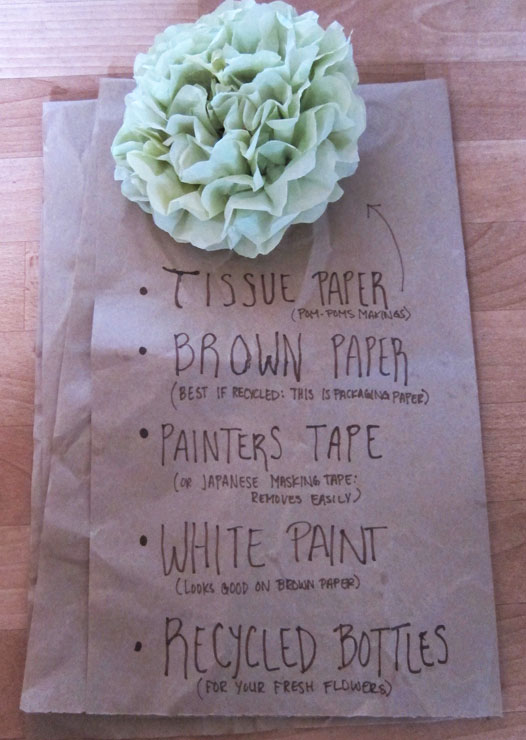 • TISSUE PAPER
(POM-POMS MAKINGS)
• BROWN PAPER
(BEST IF RECYCLED: THIS IS PACKAGING PAPER)
• PAINTERS TAPE
(OR JAPANESE MASKING TAPE:
REMOVES EASILY)
• WHITE PAINT
(LOOKS GOOD ON BROWN PAPER)
• RECYCLED BOTTLES
(FOR YOUR FRESH FLOWERS)